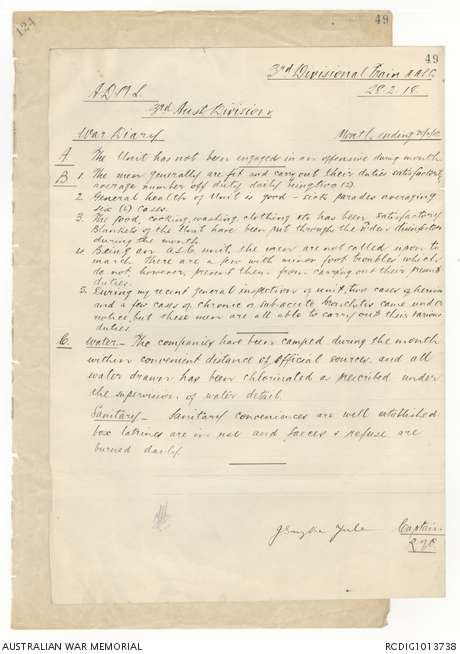 124
49
49
3rd Divisional Train AASC
28.2.18
A.D.M.S.
3rd Aust Division
War Diary
Month ending 28/2/18
A The Unit has not been engaged in an offensive during month
B 1. The men generally are fit and carry out their duties satisfactorily
average number off duty daily being two (2).
2. General health of Unit is good – sick parades averaging
six (6) cases.
3. The food, cooking, washing, clothing etc has been satisfactory
Blankets of the Unit have been put through the disinfector
during the month.
4. Being an A.S.C. unit, the men are not called upon to
march. There are a few with minor foot troubles which
do not, however, prevent them from carrying out their present
duties.
5. During my recent general inspection of unit, two cases of hernia
and a few cases of chronic or subacute bronchitis came under
notice, but these men are all able to carry out their various
duties.
C. Water – The companies have been camped during the month
within convenient distance of official sources, and all
water drawn has been chlorinated as prescribed under
the supervision of water detail.
Sanitary – Sanitary conveniences are well established
box latrines are in use and faeces & refuse are
burned daily.
Yule Captain
AUSTRALIAN WAR MEMORIAL
RCDIG1013738